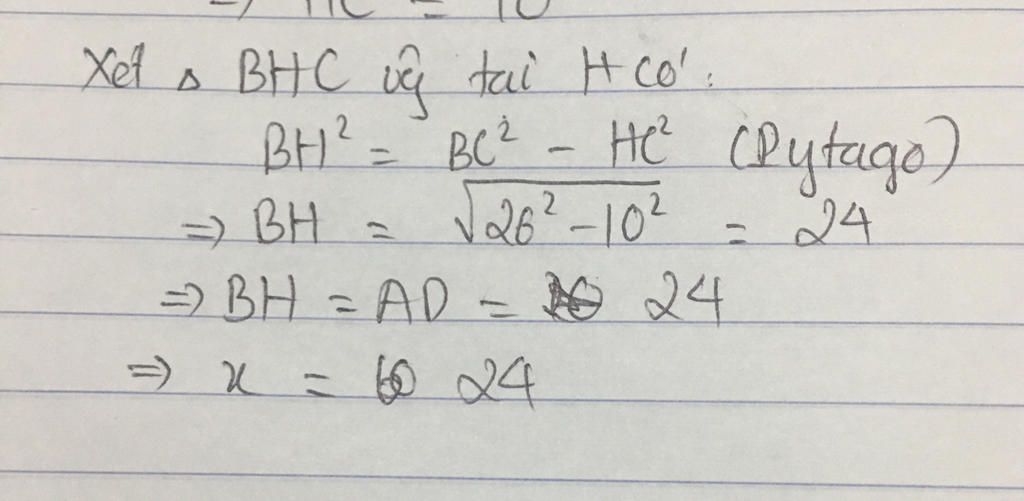 => HC = 10
Xét Δ BHC vg tai H có:
BH² = BC² - HC² (Pytago)
=> BH = √26² - 10² = 24
=> BH = AD = 24
=> x = 24